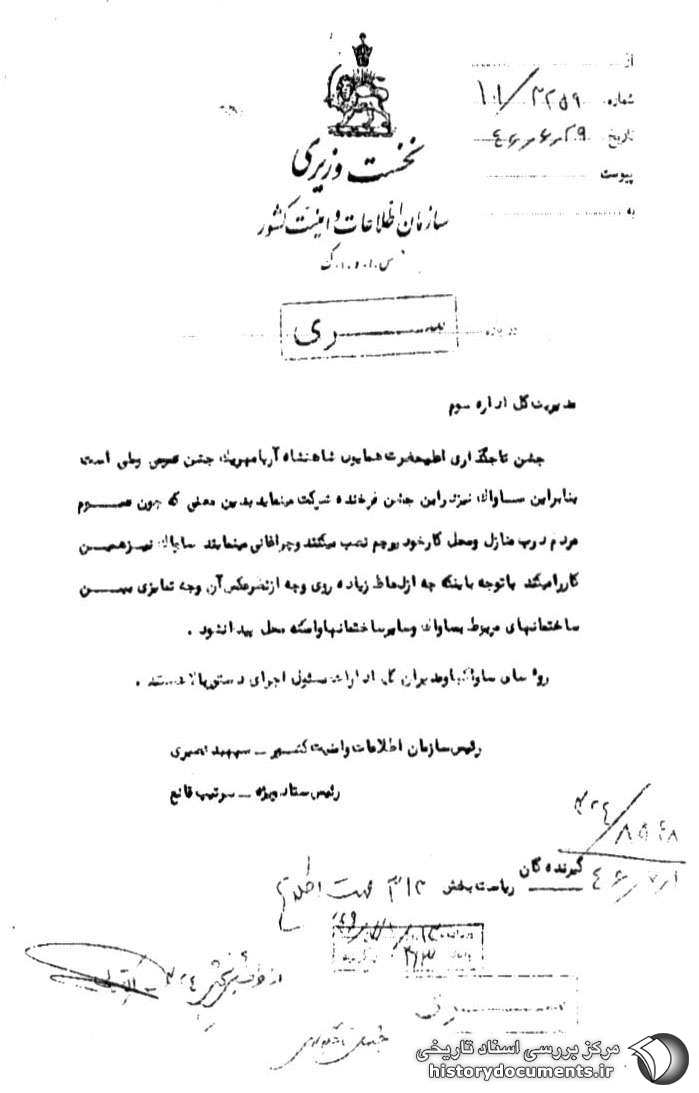 از
شماره ۱۱/۳۲۵۹
تاریخ ۴۶٫۶٫۲۹
پیوست
به
نخست وزیری
سازمان اطلاعات و امنیت کشور
س.ا.و.ا.ک
درباره
سری
مدیریت کل اداره سوم
جشن تاجگذاری اعلیحضرت همایون شاهنشاه آریامهر یک جشن عمومی و ملی است
بنابراین ساواک نیز در این جشن فرخنده شرکت مینماید بدین معنی که چون عموم
مردم درب منازل و محل کار خود پرچم نصب میکنند و چراغانی مینمایند ساواک نیز همین
کار را میکند با توجه باینکه چه از لحاظ زیاده روی و چه از نظر عکس آن وجه تمایزی بین
ساختمانهای مربوط بساواک و سایر ساختمانها و اسکه محل پیدا نشود .
روسای ساواکها و مدیران کل ادارات مسئول اجرای دستور بالا هستند .
رئیس سازمان اطلاعات و امنیت کشور - سپهبد نصیری
رئیس ستاد ویژه - سرتیپ قانع
۳۲۴/
۴۶٫۷٫۱
گیرندگان
ریاست بخش ۳۱۲ جهت اطلاع
سری
مرکز بررسی اسناد تاریخی
historydocuments.ir